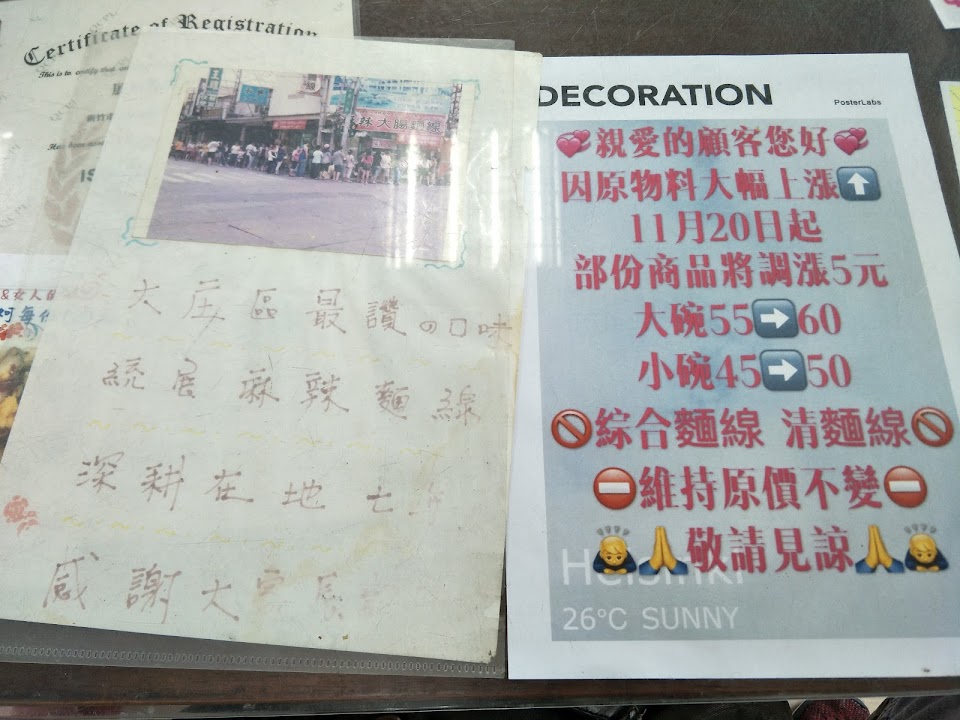 Certificate of Registration
This is to certify that
IS
大腸麵線
&女人
大庄區最讚の口味
統展麻辣麵線
深耕在地七
感謝大家長
DECORATION
PosterLabs
💞親愛的顧客您好💞
因原物料大幅上漲⬆️
11月20日起
部份商品將調漲5元
大碗55➡️60
小碗45➡️50
🚫綜合麵線 清麵線🚫
⛔維持原價不變⛔
🙇🙏敬請見諒🙏🙇
Helsinki
26°C SUNNY